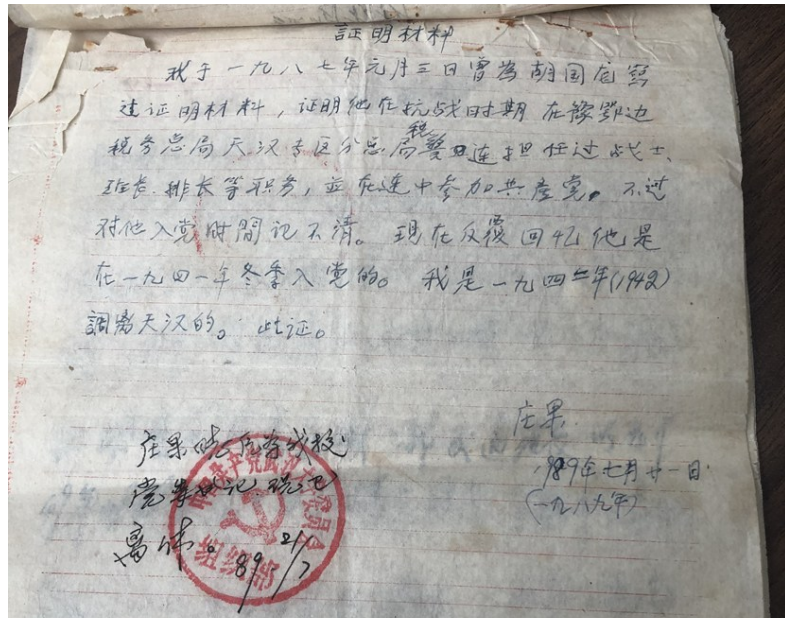 証明材料
我于一九八七年元月三日曾為胡国启寫
过证明材料，证明他在抗战时期在豫鄂边
税务总局天汉专区分总局税警连担任过战士、
班长、排长等职务，並在连中参加共產党。不过
对他入党时間记不清。現在反覆回忆他是
在一九四一年冬季入党的。我是一九四二年(1942)
調离天汉的。此证。
庄果
1989年七月廿一日
(一九八九年)
庄果
党委书记 现已
离休。89 21/7
中国共产党武汉大学委员会
组织部